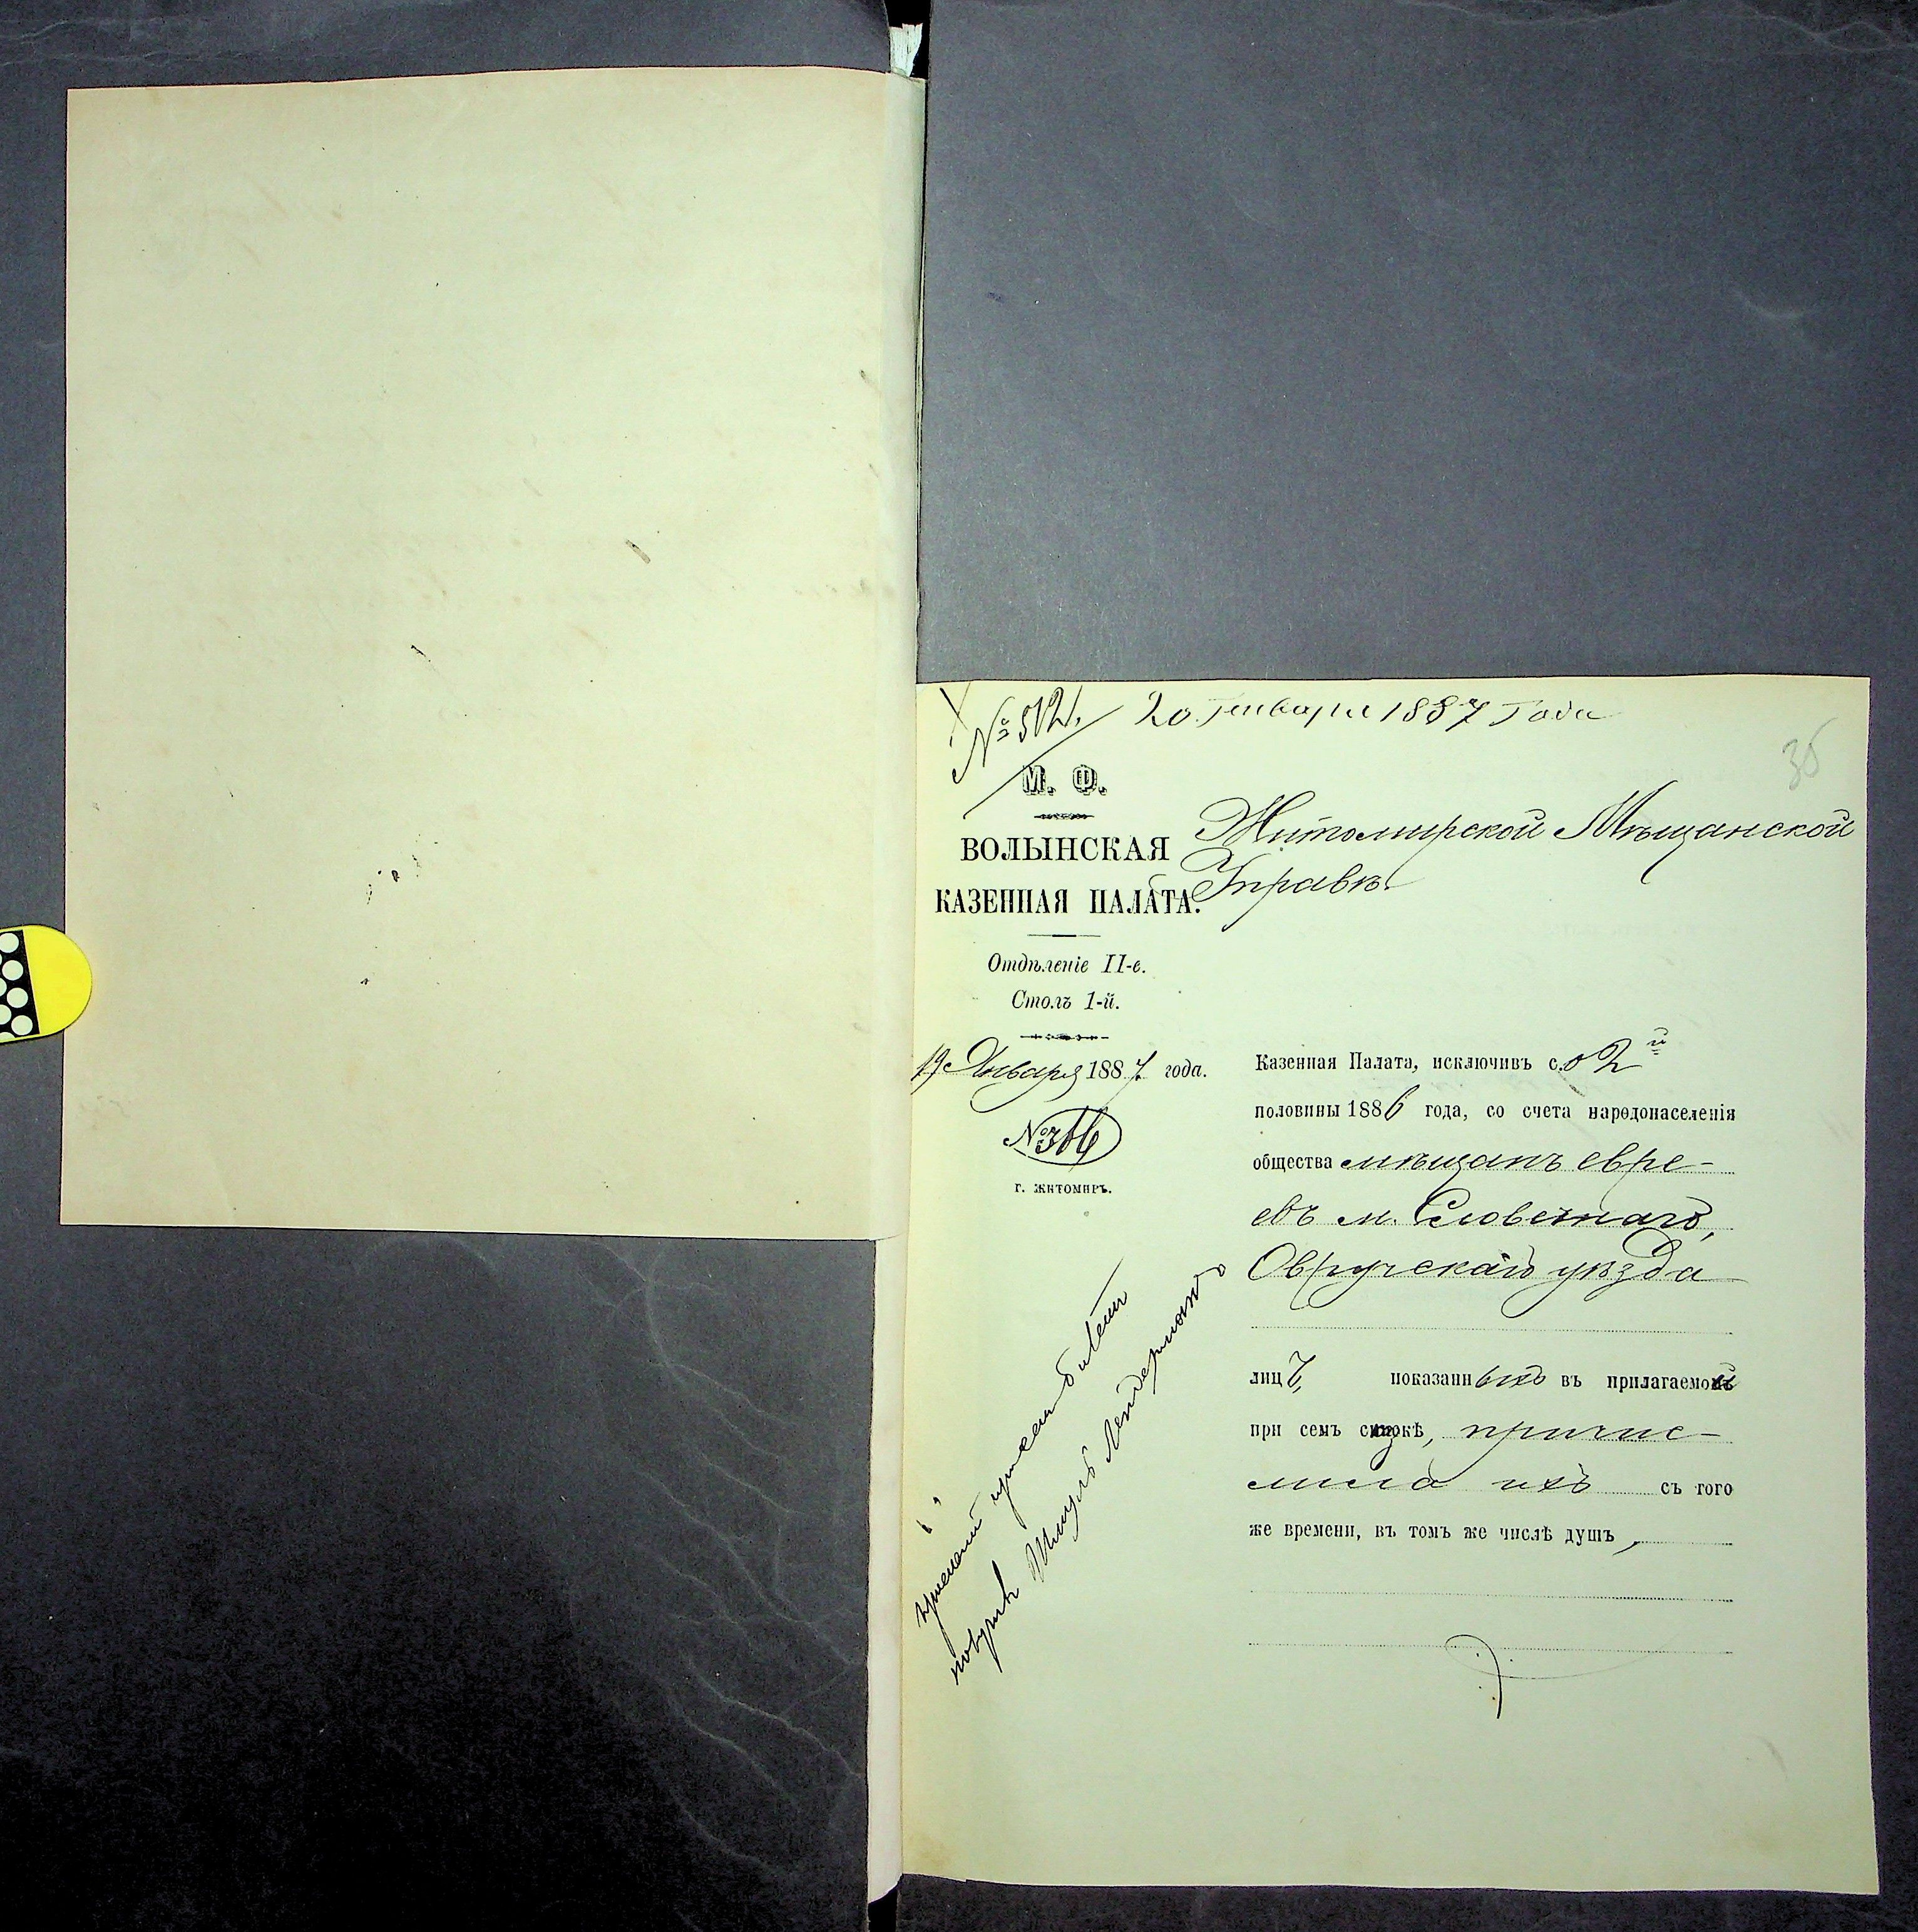 № 512. 20 Января 1887 Года
35
М. Ф.
ВОЛЫНСКАЯ
КАЗЕННАЯ ПАЛАТА.
Отдѣленіе II-е.
Столъ 1-й.
19 Января 1887 года.
№ 366
г. ЖИТОМИРЪ.
Житомирской Мѣщанской
Управѣ.
Казенная Палата, исключивъ со 2й
половины 1886 года, со счета народонаселенія
общества мѣщанъ евре-
евъ м. Словечнаго,
Овручскаго уѣзда
лицъ, показанныхъ въ прилагаемой
при семъ спискѣ, причис-
лила ихъ съ того
же времени, въ томъ же числѣ душъ,
Шмулъ Лендерманъ